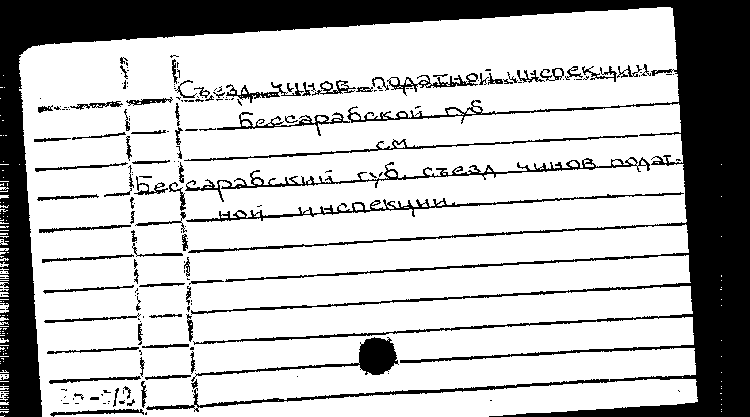 Съезд чинов податной инспекции
Бессарабской губ.
см.
Бессарабский губ. съезд чинов подат-
ной инспекции.